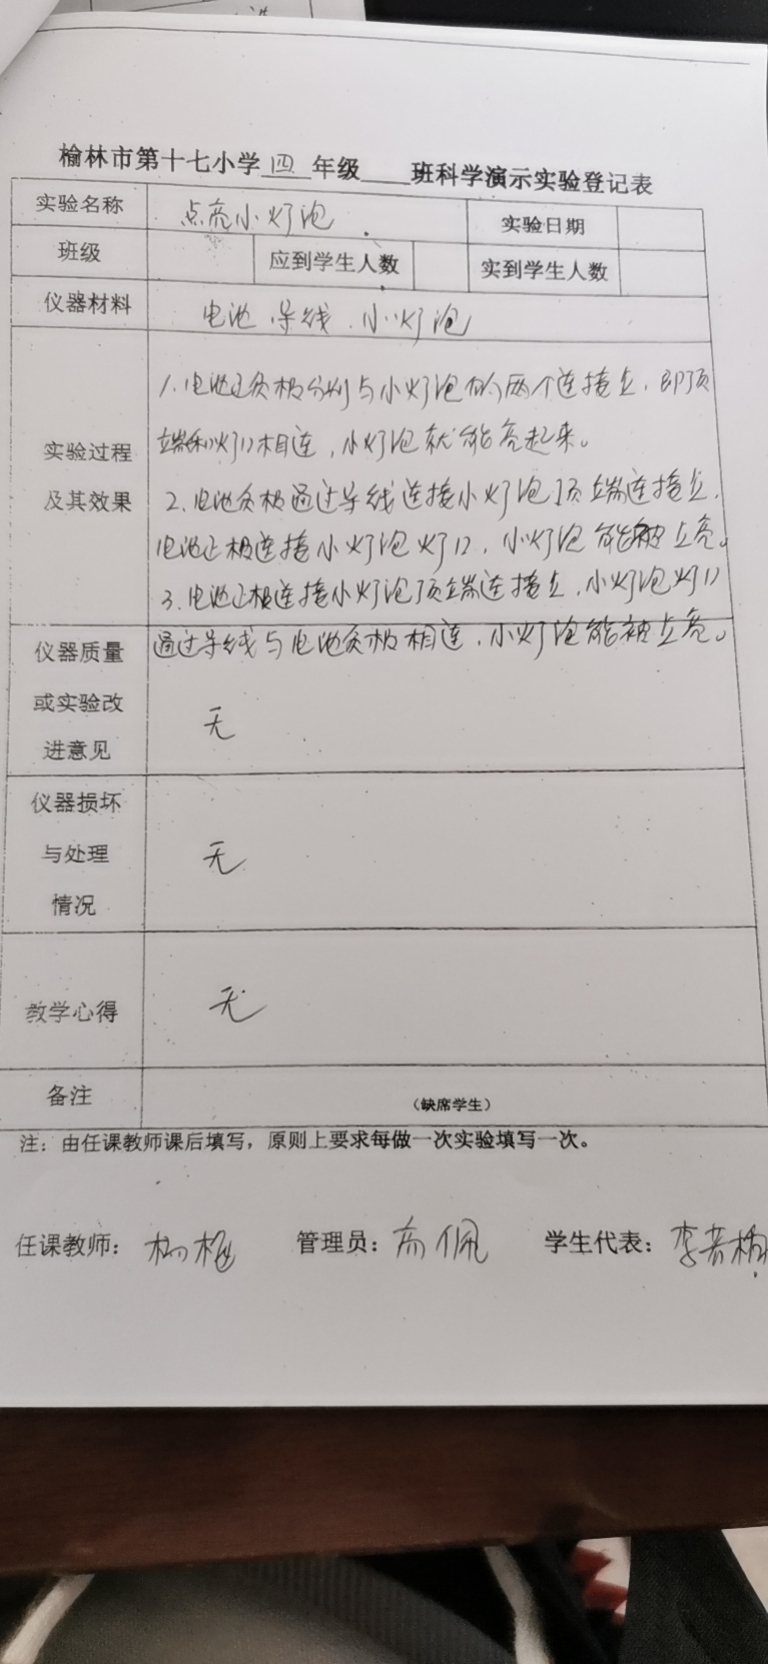 榆林市第十七小学四年级___班科学演示实验登记表
实验名称 点亮小灯泡 实验日期
班级 应到学生人数 实到学生人数
仪器材料 电池、导线、小灯泡
实验过程及其效果
1.电池正负极分别与小灯泡的两个连接点,即顶
端和灯口相连,小灯泡就能亮起来。
2.电池负极通过导线连接小灯泡顶端连接点,
电池正极连接小灯泡灯口,小灯泡能被点亮。
3.电池正极连接小灯泡顶端连接点,小灯泡灯口
通过导线与电池负极相连,小灯泡能被点亮。
仪器质量
或实验改 无
进意见
仪器损坏
与处理 无
情况
教学心得 无
备注 (缺席学生)
注:由任课教师课后填写,原则上要求每做一次实验填写一次。
任课教师: 管理员: 高佩 学生代表: 李